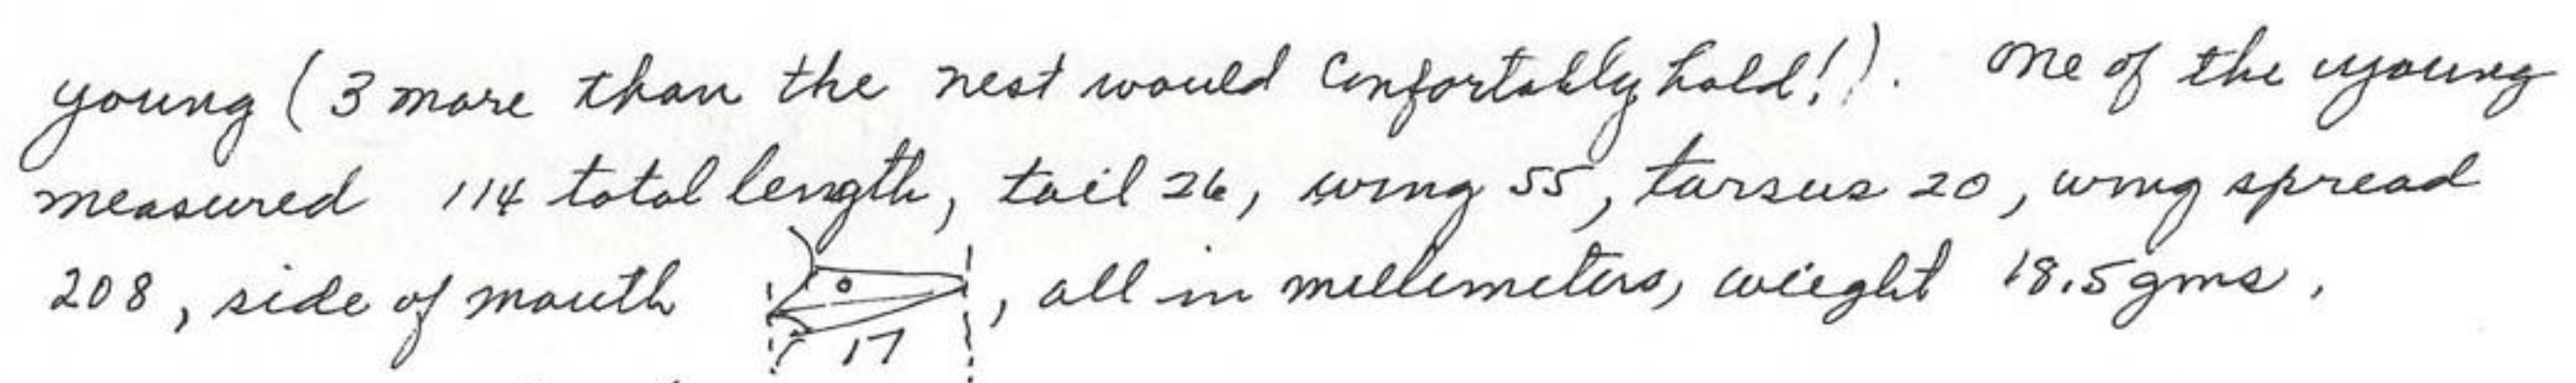 young (3 more than the nest would comfortably hold!). One of the young
measured 114 total length, tail 26, wing 55, tarsus 20, wing spread
208, side of mouth 17, all in millemeters, wieght 18.5 gms.